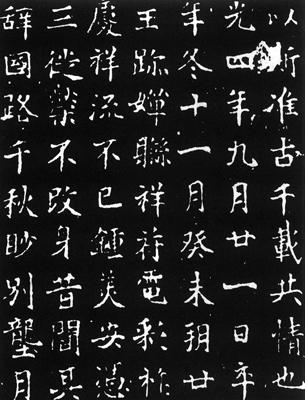 以斯准古千載共情也
光四年九月廿一日卒
年冬十一月癸未朔廿
王跡嬋聯祥符電彩祚
慶祥流不已鍾美安憑
三徙藥不改身昔聞其
辭國路千秋眇別壟月